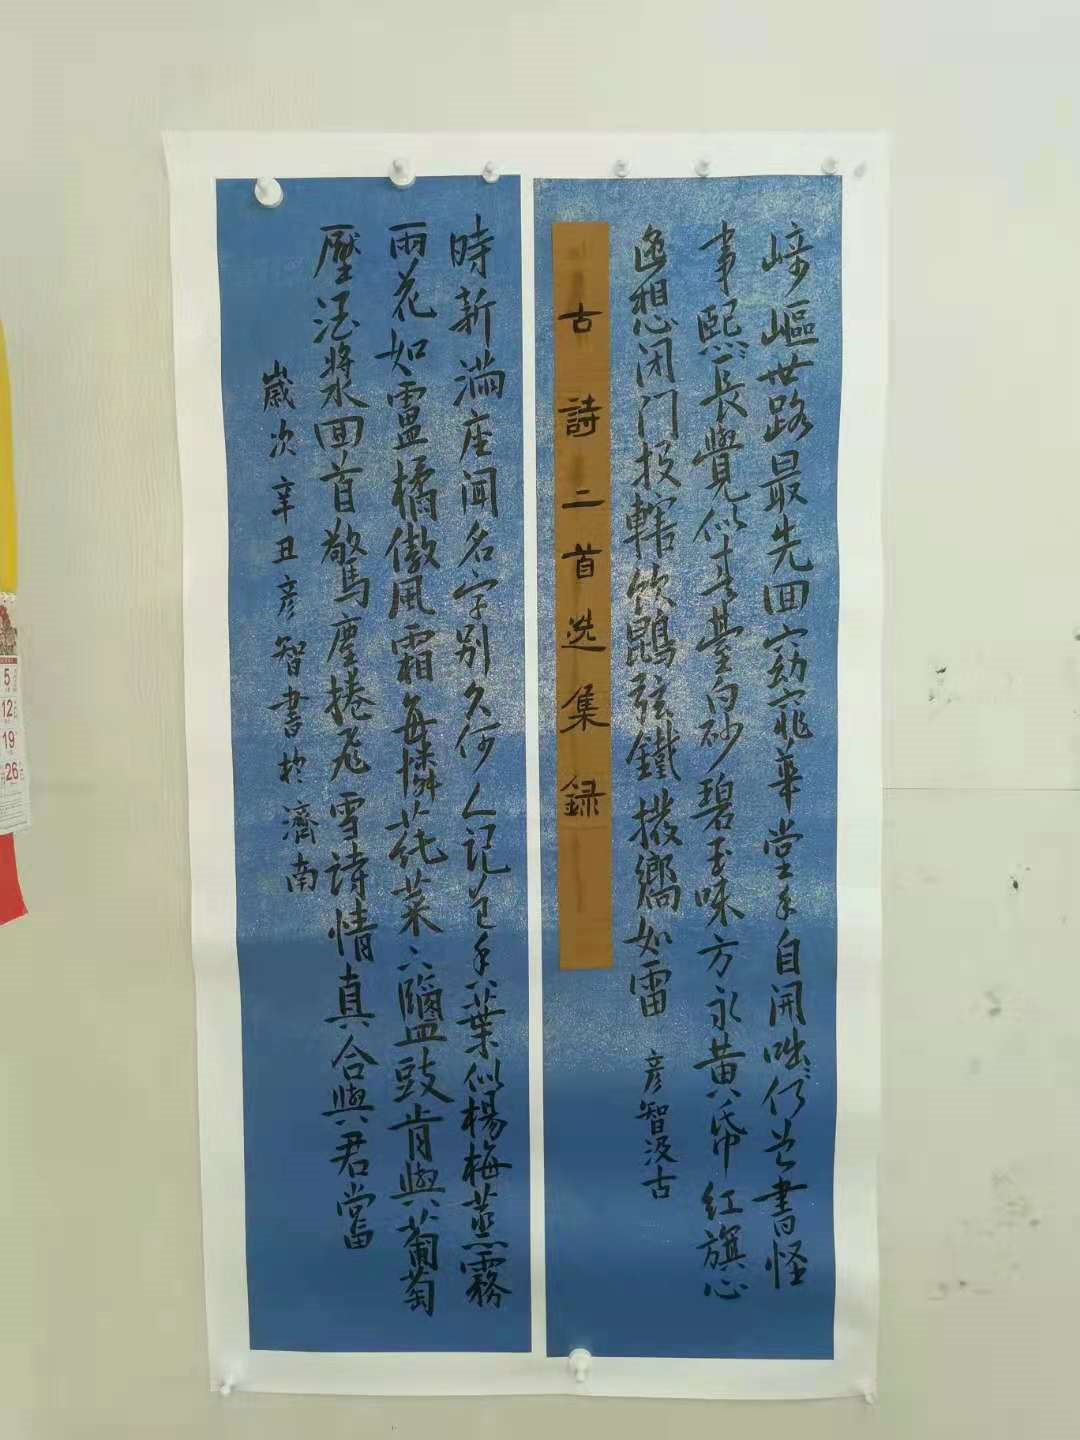 崎嶇世路最先回窈窕華堂手自開咄〻何曾書怪
事熙〻長覺似春臺白砂碧玉味方永黄帋紅旗心
想闭门投轄饮鵾弦鐵撥響如雷 彦智汲古
古詩二首选集録
時新满座闻名字别久何人记色香葉似楊梅蒸霧
雨花如盧橘傲風霜每憐蒓菜下鹽豉肯與葡萄
壓酒漿回首驚塵捲飛雪詩情真合與君當
歲次辛丑彦智書於濟南
5
12
19
26